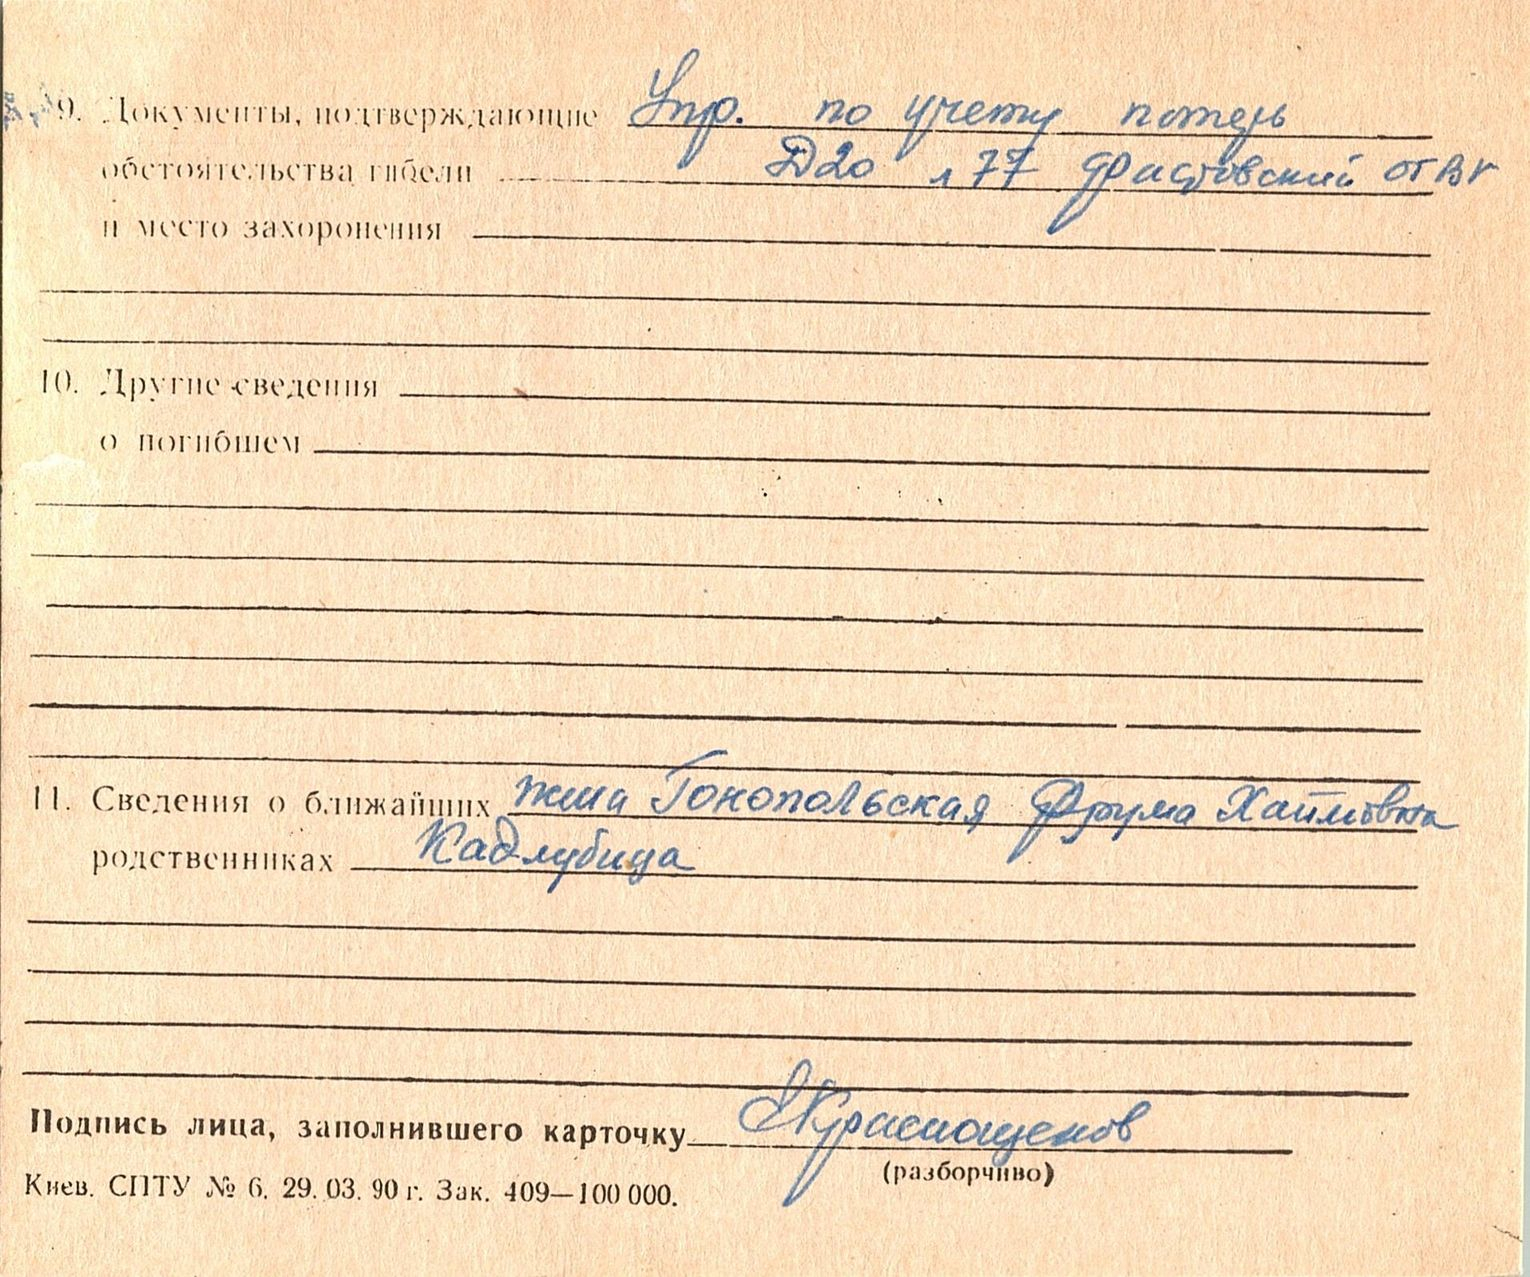 9. Документы, подтверждающие Упр. по учету потерь
обстоятельства гибели Д20 л 77 Фастовский ОГВК
и место захоронения
10. Другие сведения
о погибшем
11. Сведения о ближайших жена Гонопольская Фрума Хаимовна
родственниках Кадлубица
Подпись лица, заполнившего карточку ЕКраснощеков
(разборчиво)
Киев. СПТУ № 6. 29. 03. 90 г. Зак. 409—100 000.